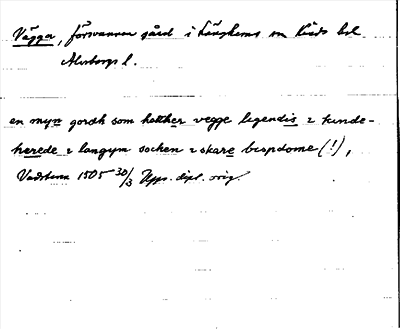 Väggar, försvunnen gård i Långhems sn Kinds hd
Älvsborgs l.
en myn gordh som hether vegge legendis i kinde-
herede i langym sochen i skare bispdome (!),
Vadstena 1505 30/3 Upps. dipl. orig.